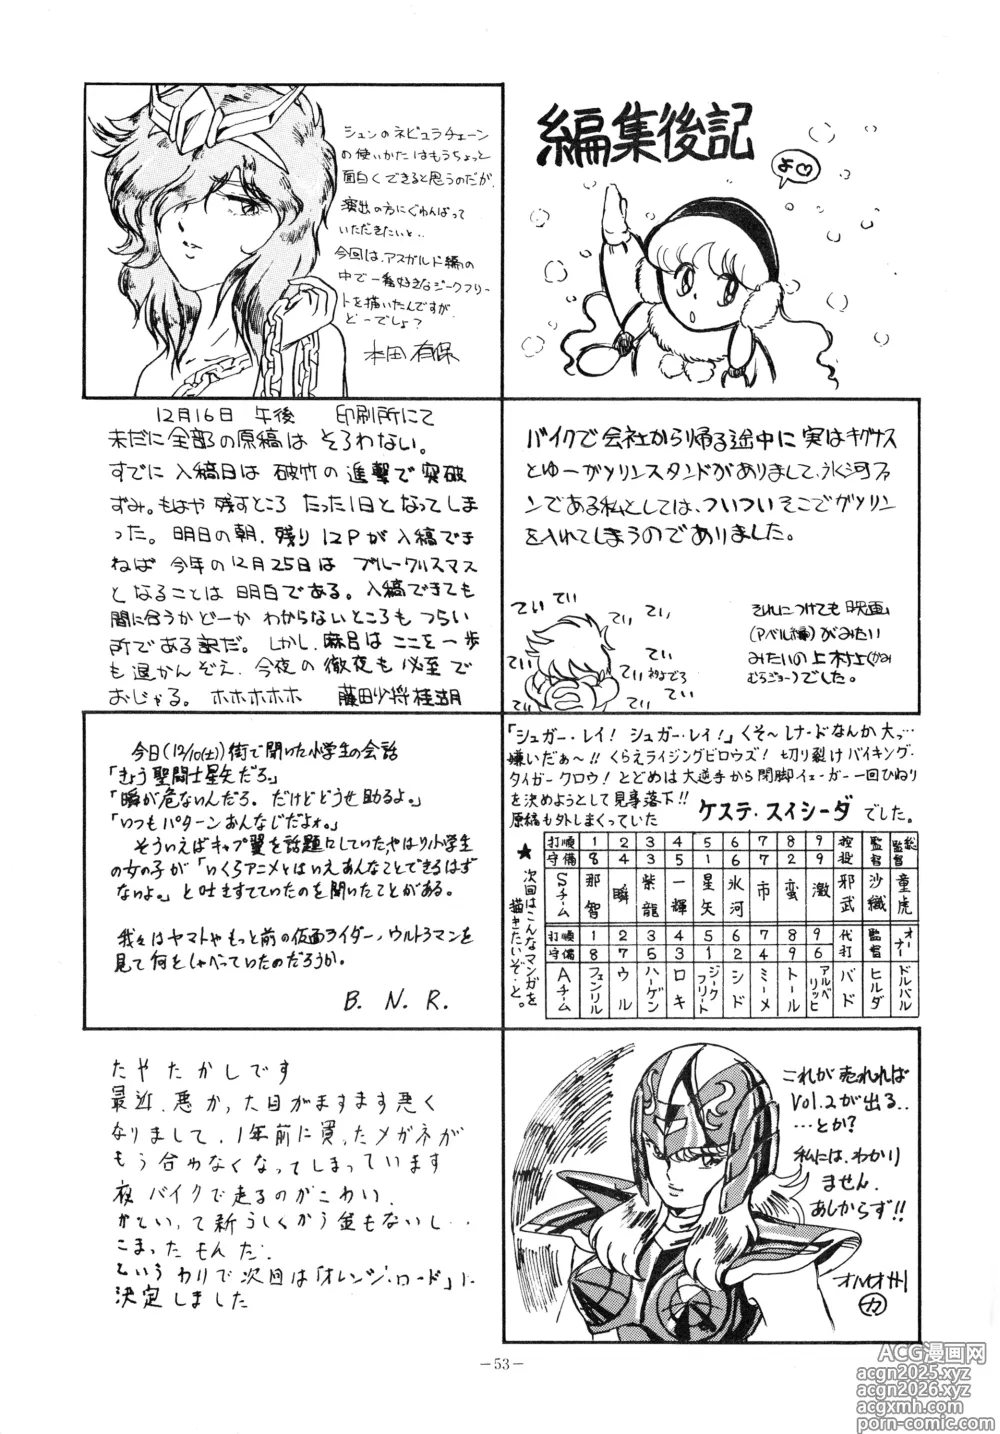 編集後記
よ♡
シュンのネビュラチェーン
の使いかたはもうちょっと
面白くできると思うのだが、
演出の方にぐゎんばって
いただきたいと‥
今回は、アスガルド編の
中で一番好きなジークフリー
トを描いたんですが
どーでしょ?
本田 有保
12月16日 午後 印刷所にて
未だに全部の原稿は そろわない。
すでに入稿日は 破竹の進撃で突破
ずみ。もはや残すところ たった1日となってしま
った。明日の朝、残り12Pが入稿でき
ねば 今年の12月25日は ブルークリスマス
となることは 明白である。入稿できても
間に合うかどーか わからないところも つらい
所である訳だ。しかし、麻呂は ここを一歩
も退かんぞえ、今夜の徹夜も必至で
おじゃる。ホホホホホ 藤田少将桂胡
バイクで会社から帰る途中に実はキグナス
とゆーガソリンスタンドがありまして、氷河ファ
ンである私としては、ついついそこでガソリン
を入れてしまうのでありました。
てい てい てい てい てい
てい てい てい てい てい
それにつけても映画
(アベル編)がみたい
みたいの上村は(かみ
むらジョー)でした。
今日(12/10(土))街で聞いた小学生の会話
「きょう聖闘士星矢だろ。」
「瞬が危ないんだろ。だけどどうせ助るよ。」
「いつもパターンおんなじだよォ。」
そういえばキャプ翼を話題にしていたやはり小学生
の女の子が「いくらアニメとはいえあんなことできるはず
ないよ。」と吐きすてていたのを聞いたことがある。
我々はヤマトやもっと前の仮面ライダー、ウルトラマンを
見て何をしゃべっていたのだろうか。
B. N. R.
「シュガー・レイ! シュガー・レイ!」くそ〜レナードなんか大っ…
嫌いだぁ〜!! くらえライジングビロウズ! 切り裂けバイキング・
タイガークロウ! とどめは大逆手から開脚イェーガー一回ひねり
を決めようとして見事落下!!
原稿も外しまくっていた ケステ・スイシーダ でした。
★次回はこんなマンガを
描きたいぞ・と。
打順 1 2 3 4 5 6 7 8 9 控 監督 総監督
守備 8 4 3 5 1 6 7 2 9 投
Sチーム 那智 瞬 紫龍 一輝 星矢 氷河 市 蛮 激 邪武 沙織 童虎
打順 1 2 3 4 5 6 7 8 9 代 監督 オーナー
守備 8 7 5 3 1 2 4 9 6 打
Aチーム フェンリル ウル ハーゲン ロキ ジークフリート シド ミーメ トール アルベリッヒ バド ヒルダ ドルバル
たやたかしです
最近、悪かった目がますます悪く
なりまして、1年前に買ったメガネが
もう合わなくなってしまっています
夜バイクで走るのがこわい、
かといって新しくかう金もないし‥
こまったもんだ.
というわりで次回は「オレンジ・ロード」に
決定しました
これが売れれば
Vol.2が出る‥
‥とか?
私には、わかり
ません.
あしからず!!
オルオ州
カ
—53—
ACG漫画网
acgn2025.xyz
acgn2026.xyz
acgxmh.com
porn-comic.com